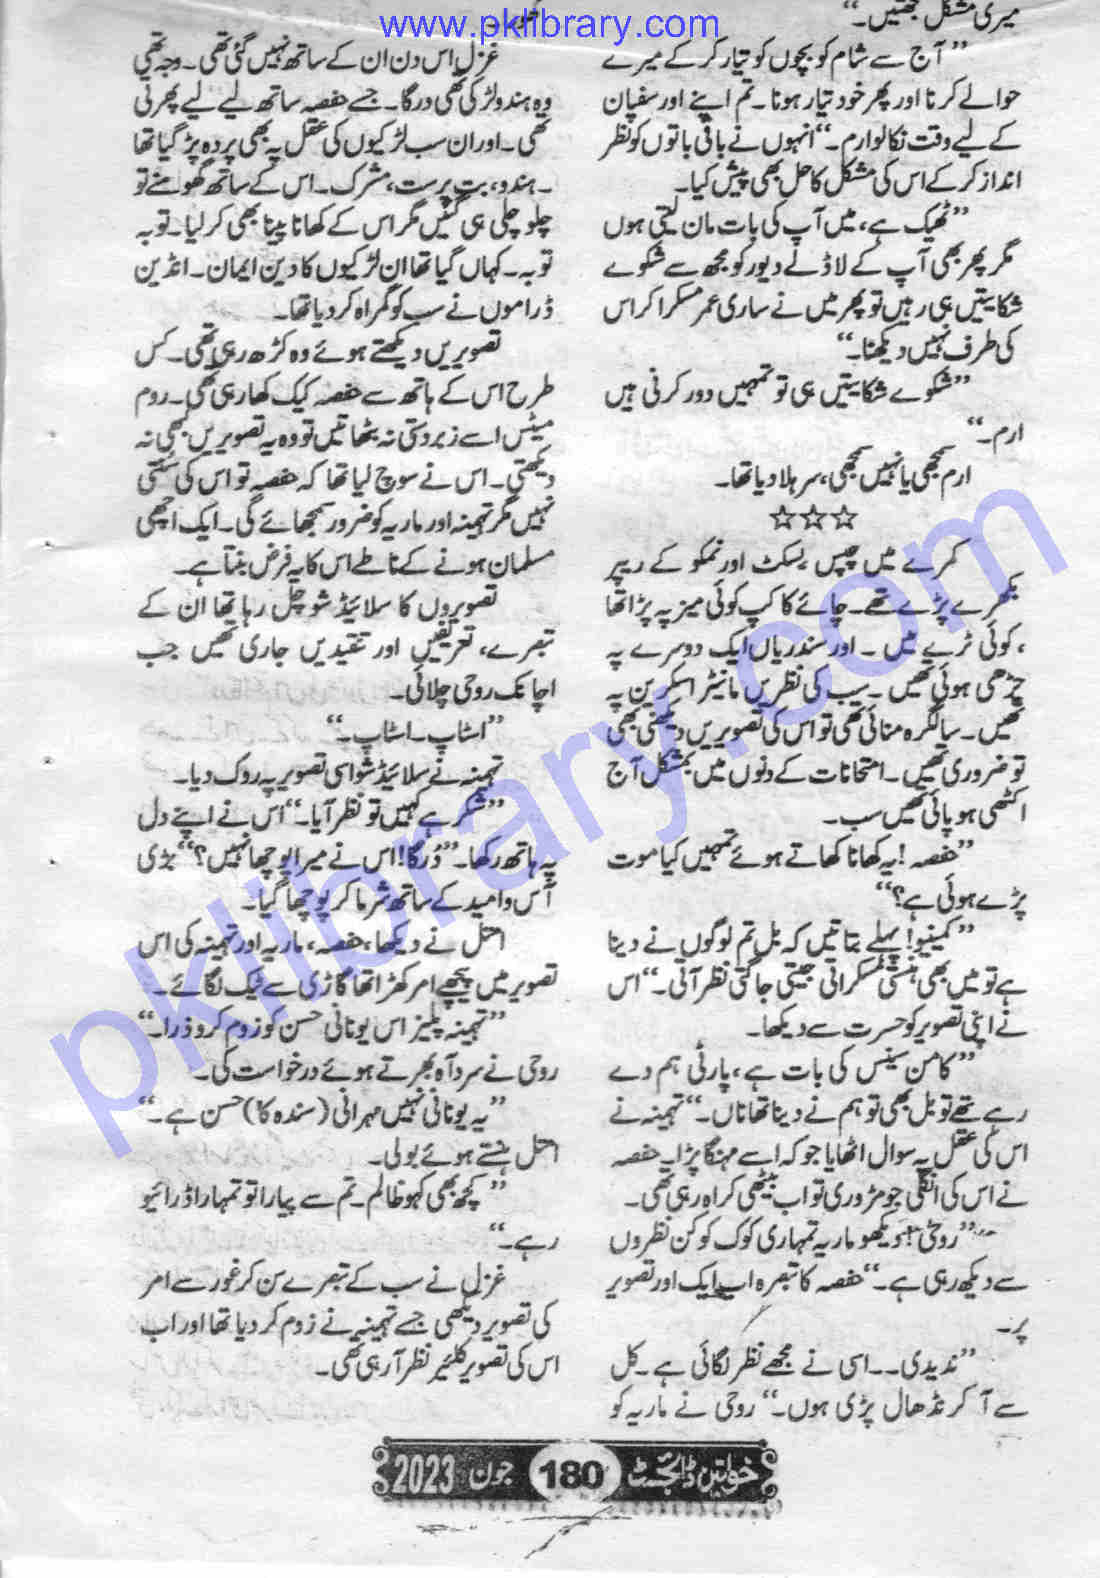 www.pklibrary.com
میری مشکل سمجھتیں۔“
”آج سے شام کو بچوں کو تیار کر کے میرے
حوالے کرنا اور پھر خود تیار ہونا۔ تم اپنے اور سفیان
کے لیے وقت نکالو ارم۔“ انہوں نے باقی باتوں کو نظر
انداز کر کے اس کی مشکل کا حل بھی پیش کیا۔
”ٹھیک ہے، میں آپ کی بات مان لیتی ہوں
مگر پھر بھی آپ کے لاڈلے دیور کو مجھ سے شکوے
شکایتیں ہی رہیں تو پھر میں نے ساری عمر مسکرا کر اس
کی طرف نہیں دیکھنا۔“
”شکوے شکایتیں ہی تو تمہیں دور کرنی ہیں
ارم۔“
ارم سمجھی یا نہیں سمجھی، سر ہلا دیا تھا۔
☆☆☆
کمرے میں چپس بسکٹ اور نمکو کے ریپر
بکھرے پڑے تھے۔ چائے کا کپ کوئی میز پہ پڑا تھا
، کوئی ٹرے میں۔ اور سندریاں ایک دوسرے پہ
چڑھی ہوئی تھیں۔ سب کی نظریں مانیٹر اسکرین پہ
تھیں۔ سالگرہ منائی تھی تو اس کی تصویریں دیکھنی بھی
تو ضروری تھیں۔ امتحانات کے دنوں میں بمشکل آج
اکٹھی ہو پائی تھیں سب۔
”حفصہ! یہ کھانا کھاتے ہوئے تمہیں کیا موت
پڑے ہوئی ہے؟“
”کمینیو! پہلے بتاتیں کہ بل تم لوگوں نے دینا
ہے تو میں بھی ہنستی مسکراتی جیتی جاگتی نظر آتی۔“ اس
نے اپنی تصویر کو حسرت سے دیکھا۔
”کامن سینس کی بات ہے، پارٹی ہم دے
رہے تھے تو بل بھی تو ہم نے دینا تھا ناں۔“ تہمینہ نے
اس کی عقل پہ سوال اٹھایا جو کہ اسے مہنگا پڑا۔ حفصہ
نے اس کی انگلی جو مڑوری تو اب بیٹھی کراہ رہی تھی۔
”روحی! دیکھو ماریہ تمہاری کوک کو کن نظروں
سے دیکھ رہی ہے۔“ حفصہ کا تبصرہ اب ایک اور تصویر
پر۔
”ندیدی۔۔ اسی نے مجھے نظر لگائی ہے۔ کل
سے آ کر نڈھال پڑی ہوں۔“ روحی نے ماریہ کو
غزل اس دن ان کے ساتھ نہیں گئی تھی۔ وجہ تھی
وہ ہندو لڑکی تھی درگا۔ جسے حفصہ ساتھ لیے لیے پھرتی
تھی۔ اور ان سب لڑکیوں کی عقل پہ بھی پردہ پڑ گیا تھا
۔ ہندو، بت پرست، مشرک۔ اس کے ساتھ گھومنے تو
چلو چلی ہی گئیں مگر اس کے کھانا پینا بھی کر لیا۔ توبہ
توبہ۔ کہاں گیا تھا ان لڑکیوں کا دین ایمان۔ انڈین
ڈراموں نے سب کو گمراہ کر دیا تھا۔
تصویریں دیکھتے ہوئے وہ کڑھ رہی تھی۔ کس
طرح اس کے ہاتھ سے حفصہ کیک کھا رہی تھی۔ روم
میٹس اسے زبردستی نہ بٹھاتیں تو وہ یہ تصویریں کبھی نہ
دیکھتی۔ اس نے سوچ لیا تھا کہ حفصہ تو اس کی سنتی
نہیں مگر تہمینہ اور ماریہ کو ضرور سمجھائے گی۔ ایک اچھی
مسلمان ہونے کے ناطے اس کا یہ فرض بنتا ہے۔
تصویروں کا سلائیڈ شو چل رہا تھا ان کے
تبصرے، تعریفیں اور تنقیدیں جاری تھیں جب
اچانک روحی چلائی۔
”اسٹاپ۔ اسٹاپ۔“
تہمینہ نے سلائیڈ شو اسی تصویر پہ روک دیا۔
”شکر ہے کہیں تو نظر آیا۔“ اس نے اپنے دل
پہ ہاتھ رکھا۔ ”دُرگا! اس نے میرا پوچھا نہیں؟“ بڑی
آس و امید کے ساتھ شرما کر پوچھا گیا۔
امتل نے دیکھا، حفصہ، ماریہ اور تہمینہ کی اس
تصویر میں پیچھے امر کھڑا تھا گاڑی سے ٹیک لگائے۔
”تہمینہ پلیز اس یونانی حسن کو زوم کرو ذرا۔“
روحی نے سرد آہ بھرتے ہوئے درخواست کی۔
”یہ یونانی نہیں مہرانی (سندھ کا) حسن ہے۔“
امتل ہنستے ہوئے بولی۔
”کچھ بھی کہو ظالم۔ تم سے پیارا تو تمہارا ڈرائیو
رہے۔“
غزل نے سب کے تبصرے سن کر غور سے امر
کی تصویر دیکھی جسے تہمینہ نے زوم کر دیا تھا اور اب
اس کی تصویر کلئیر نظر آ رہی تھی۔
خواتین ڈائجسٹ 180 جون 2023
pklibrary.com